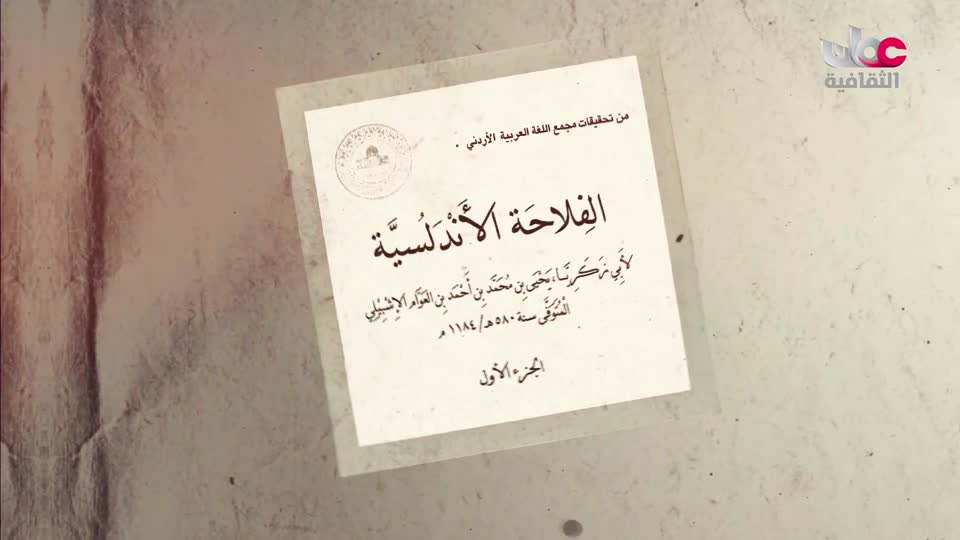 عمان
الثقافية
من تحقيقات مجمع اللغة العربية الأردني .
الفِلاحَة الأَنْدَلُسيَّة
لأَبِي زَكَرِيَّا، يَحْيَى بِن مُحَمَّد بِن أَحْمَد بِن العَوَّام الإِشْبِيْلِي
الْمُتَوَفَّى سنة ٥٨٠ هـ/ ١١٨٤ م
الجزء الأول